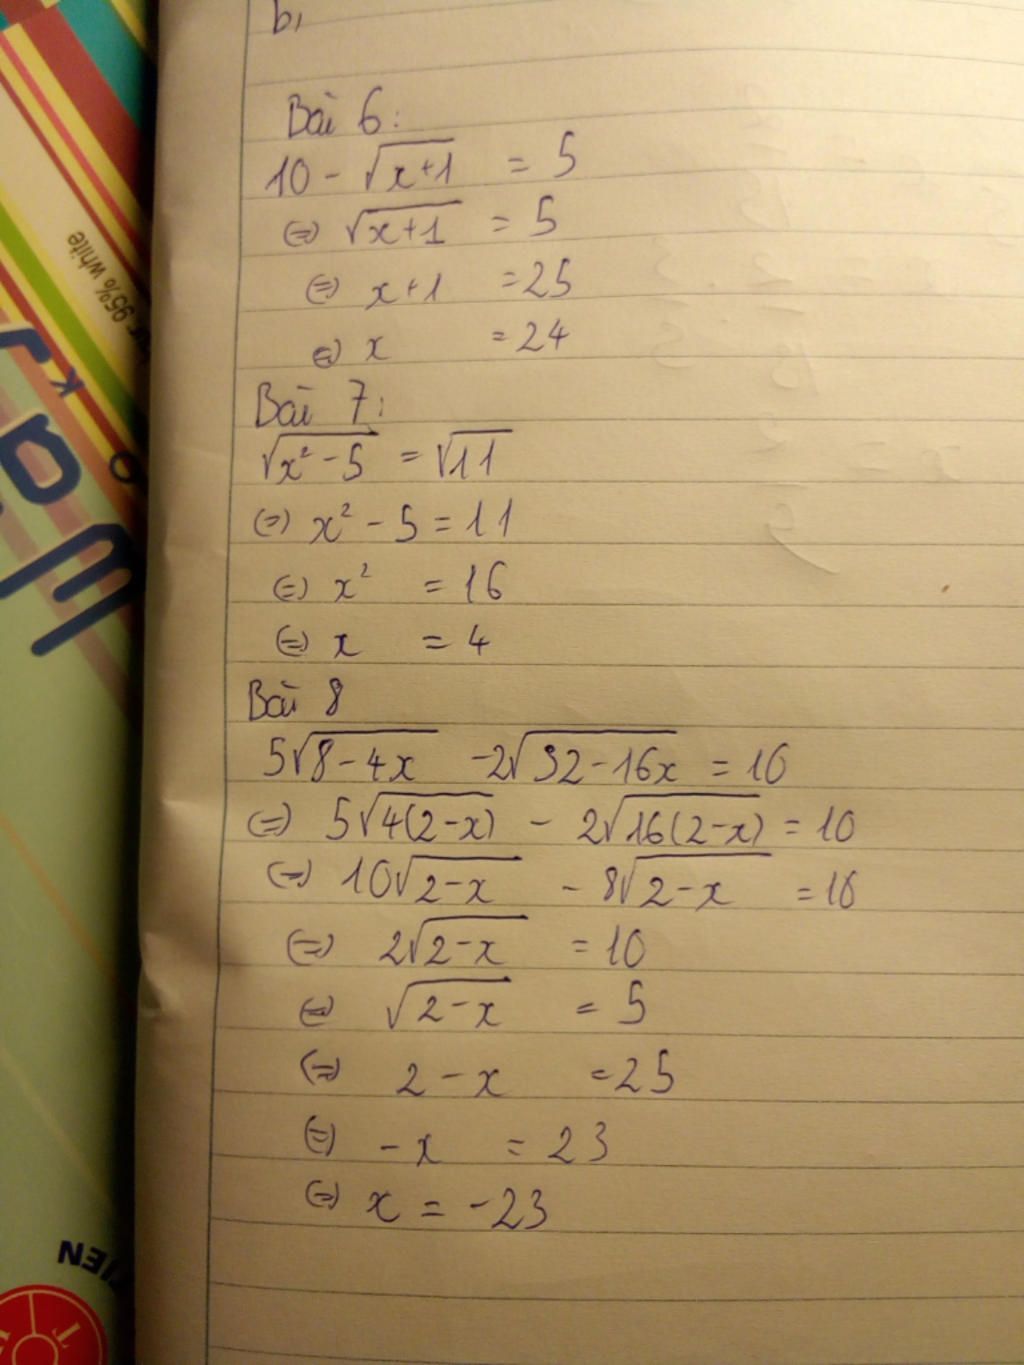 b,
Bài 6:
10 - √(x+1) = 5
⇔ √(x+1) = 5
⇔ x+1 = 25
⇔ x = 24
Bài 7:
√(x² - 5) = √11
⇔ x² - 5 = 11
⇔ x² = 16
⇔ x = 4
Bài 8
5√(8-4x) - 2√(32-16x) = 10
⇔ 5√(4(2-x)) - 2√(16(2-x)) = 10
⇔ 10√(2-x) - 8√(2-x) = 10
⇔ 2√(2-x) = 10
⇔ √(2-x) = 5
⇔ 2-x = 25
⇔ -x = 23
⇔ x = -23
95% white